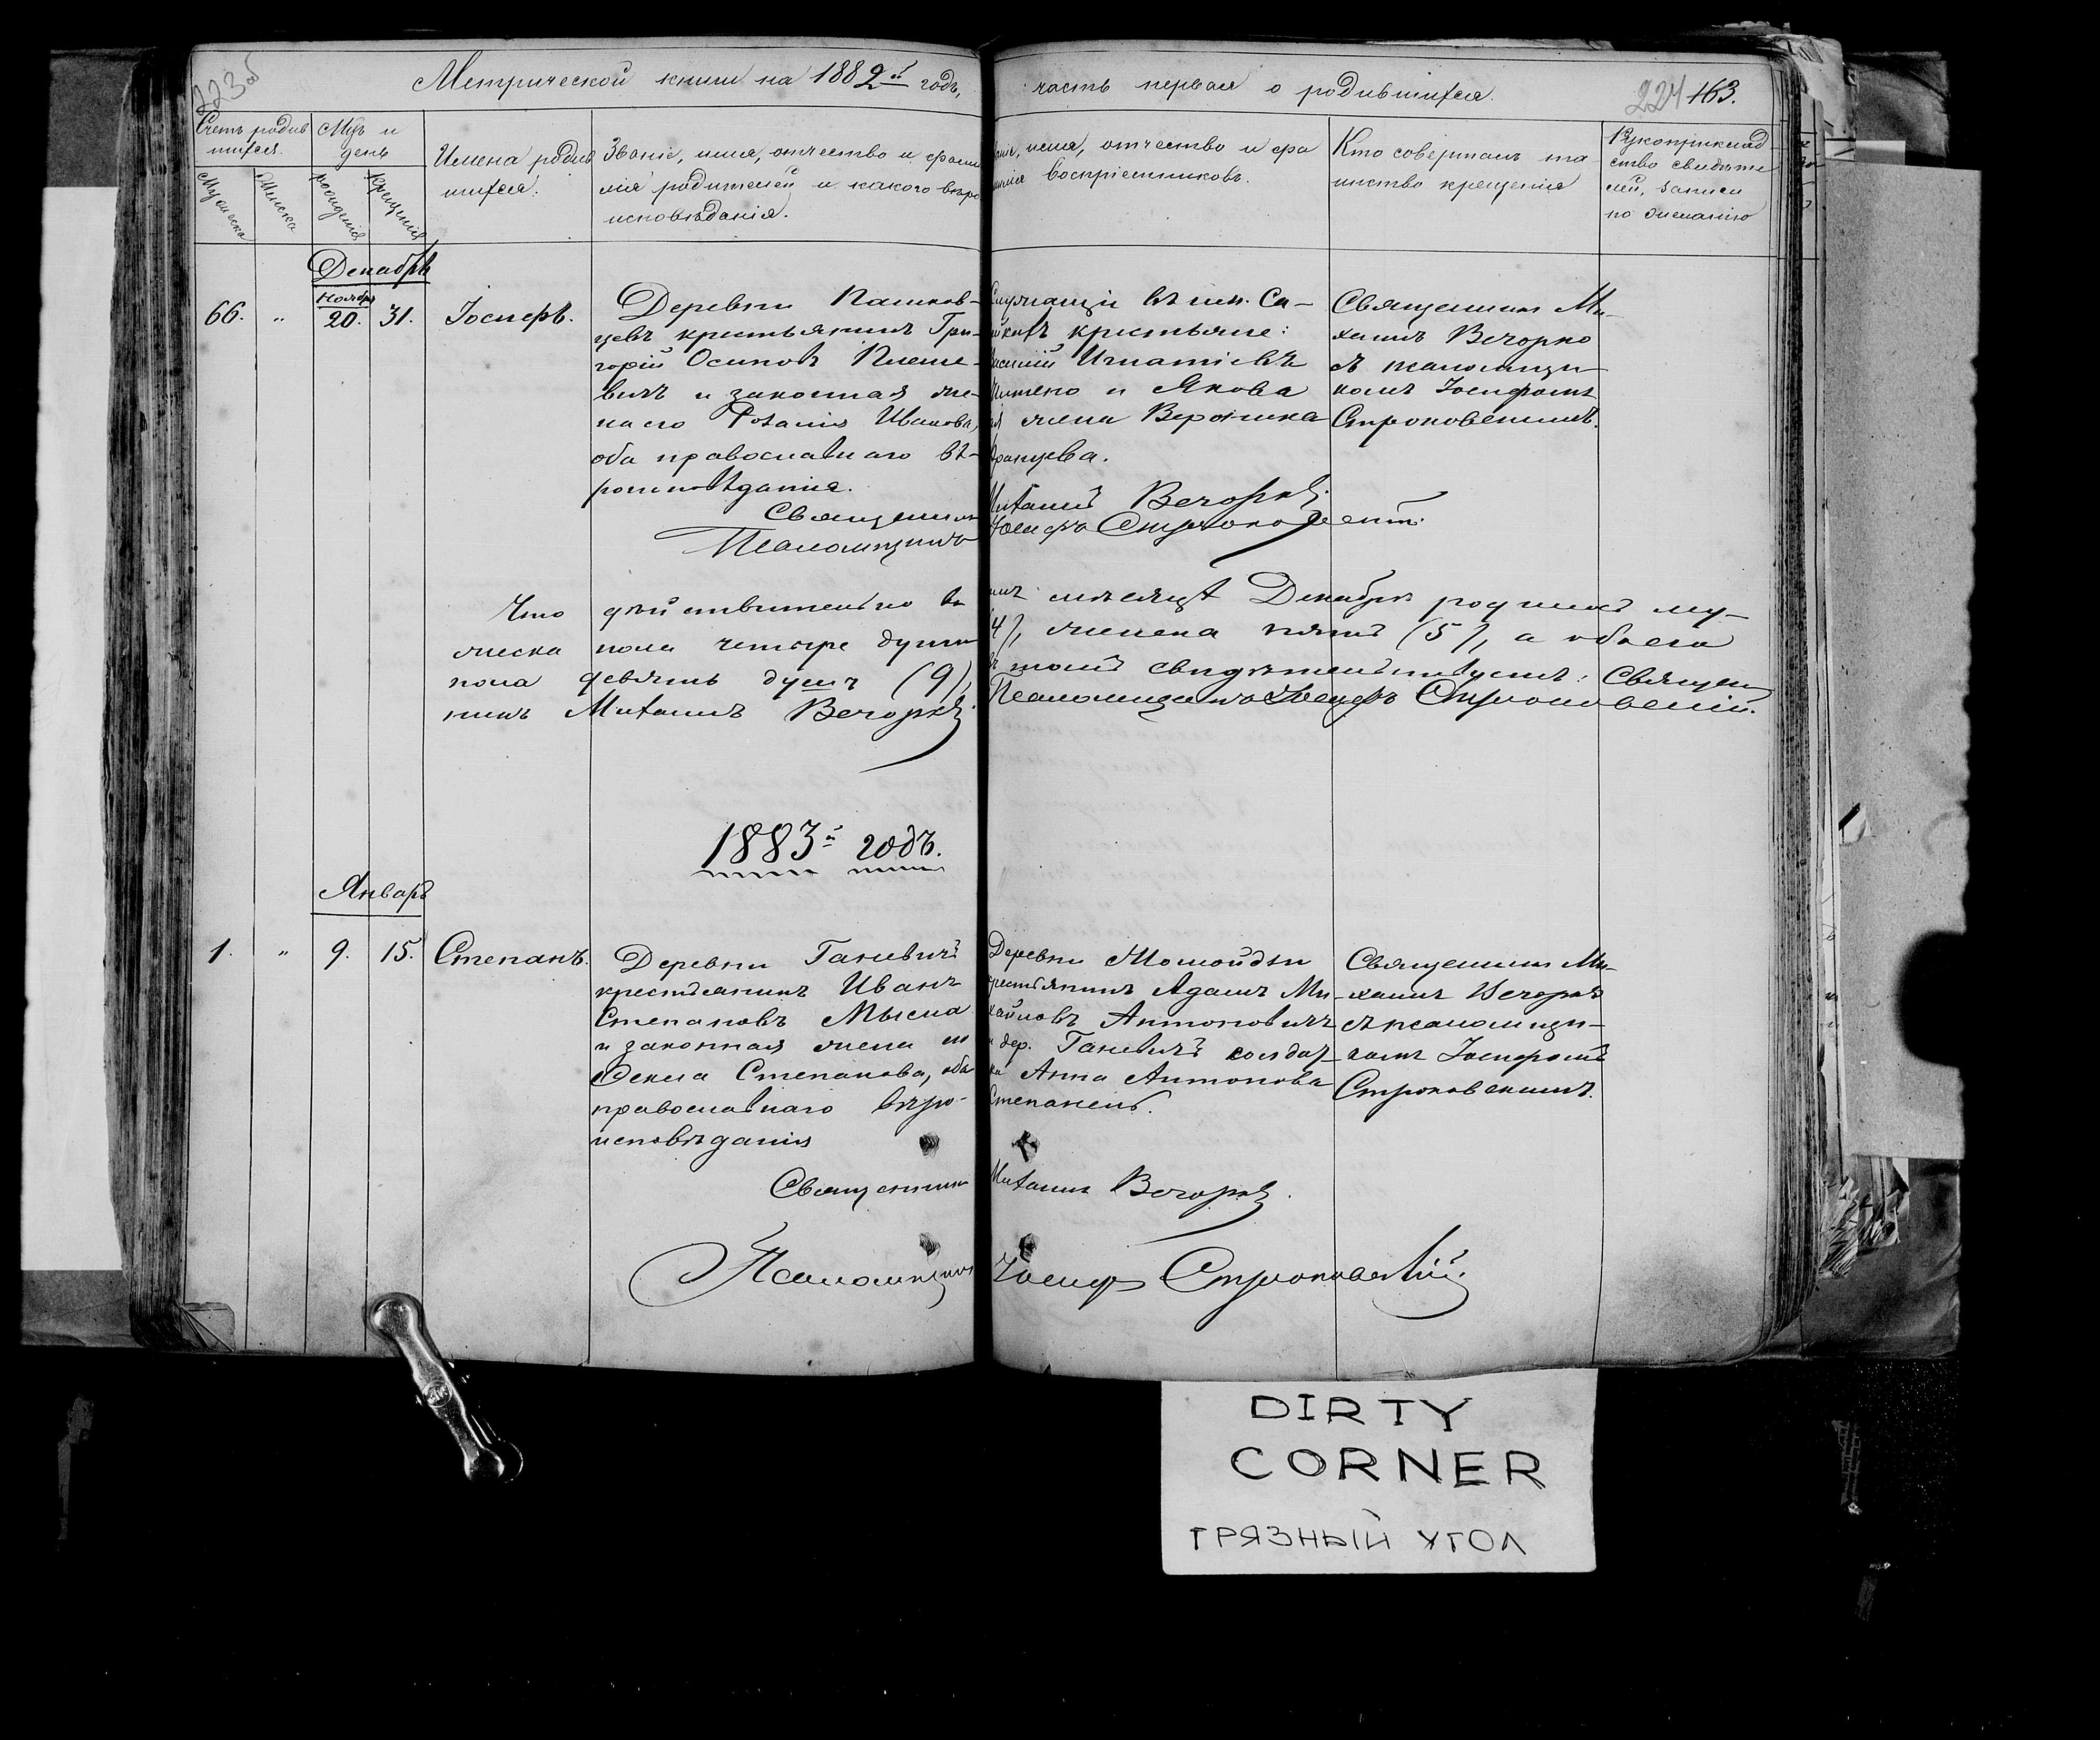 223об
Метрической книги на 1882й годъ,
часть первая о родившихся.
224 163.
Счетъ родив
шихся.
Мужеска
Женска
Мцъ и
день
рожденія
крещенія
Имена родив
шихся.
Званіе, имя, отчество и фами
лія родителей и какого вѣро
исповѣданія.
имя, отчество и фа
милія воспріемниковъ.
Кто совершалъ та
инство крещенія
Рукоприклад
ство свидѣте
лей, записи
по желанію
Декабрь
Ноября
66. " 20. 31. Іосифъ.
Деревни Пашков-
цевъ крестьянинъ Гри-
горій Осиповъ
вичъ и законная же-
на его Иванова,
оба православнаго вѣ-
роисповѣданія.
Служащіе въ им. Са-
крестьяне:
Василій Игнатіевъ
и Якова
жена Вероника
Францева.
Священникъ Ми-
хаилъ Вечорко
съ псаломщи-
комъ Іосифомъ
Строковскимъ.
Священникъ Михаилъ Вечорко
Псаломщикъ Іосифъ Строковскій.
Что дѣйствительно въ мѣсяцѣ Декабрѣ родилось му-
жеска пола четыре души (4), женска пять (5), а обоего
пола девять душъ (9), въ томъ свидѣтельствуемъ: Священ
никъ Михаилъ Вечорко Псаломщикъ Іосифъ Строковскій.
1883й годъ.
Январь
1. " 9. 15. Степанъ.
Деревни Ганевичъ
крестьянинъ Иванъ
Степановъ Мысла
и законная жена его
Фекла Степанова, оба
православнаго вѣро-
исповѣданія
Деревни Жомойди
крестьянинъ Адамъ Ми-
хайловъ Антоновичъ
и дер. Ганевичъ солдат-
ка Анна Антонова
Степанецъ.
Священникъ Ми-
хаилъ Вечорко
съ псаломщи-
комъ Іосифомъ
Строковскимъ.
Священникъ Михаилъ Вечорко.
Псаломщикъ Іосифъ Строковскій.
DIRTY
CORNER
ГРЯЗНЫЙ УГОЛ